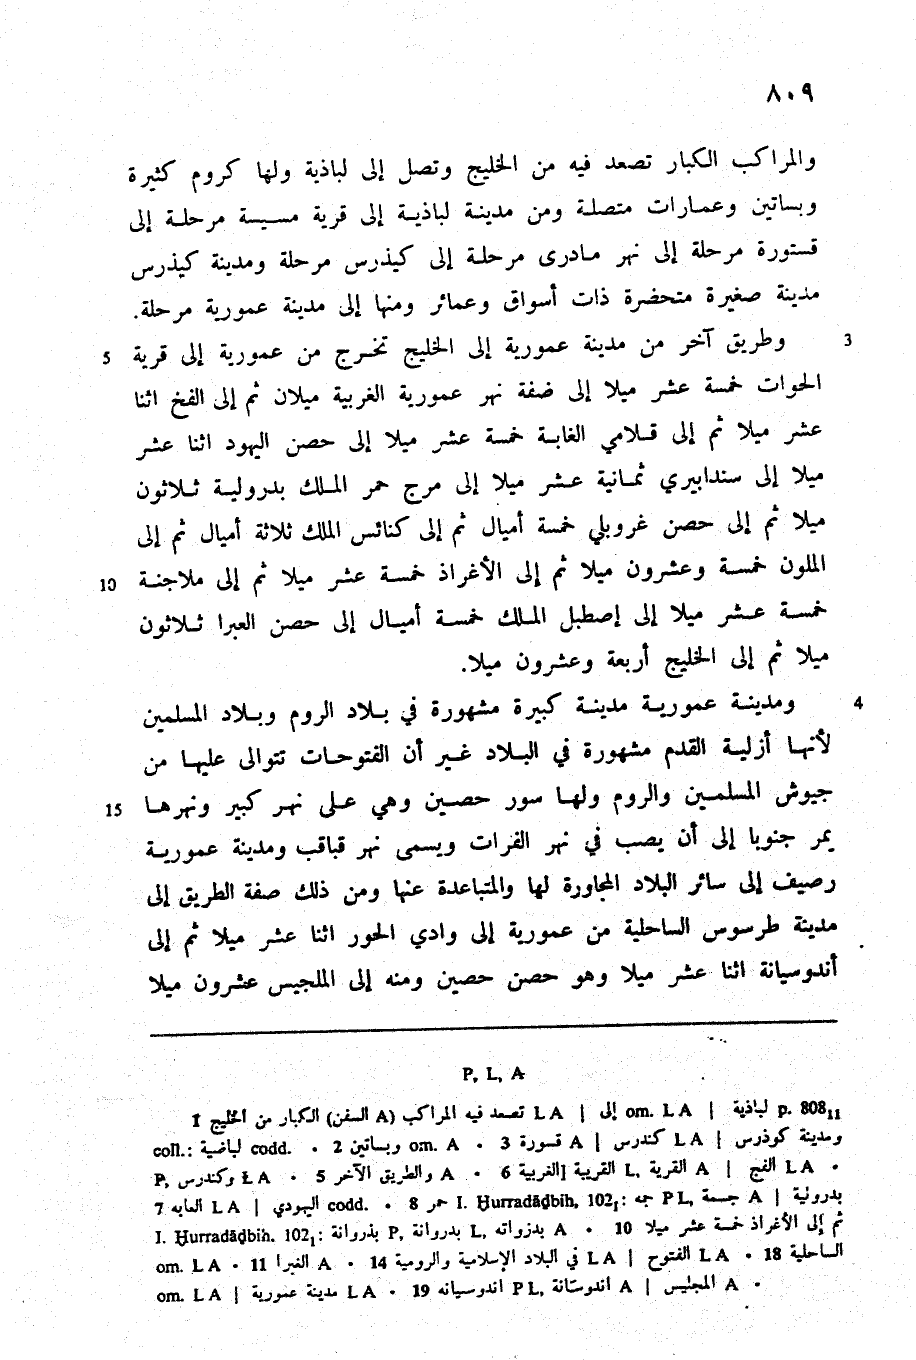 ٨٠٩
والمراكب الكبار تصعد فيه من الخليج وتصل إلى لباذية ولها كروم كثيرة
وبساتين وعمارات متصلة ومن مدينة لباذية إلى قرية مسيسة مرحلة إلى
قستورة مرحلة إلى نهر مادرى مرحلة إلى كيذرس مرحلة ومدينة كيذرس
مدينة صغيرة متحضرة ذات أسواق وعمائر ومنها إلى مدينة عمورية مرحلة.
3 وطريق آخر من مدينة عمورية إلى الخليج تخرج من عمورية إلى قرية 5
الحوات خمسة عشر ميلا إلى ضفة نهر عمورية الغربية ميلان ثم إلى الفخ اثنا
عشر ميلا ثم إلى قلامي الغابة خمسة عشر ميلا إلى حصن اليهود اثنا عشر
ميلا إلى سندابيري ثمانية عشر ميلا إلى مرج حمر الملك بدرولية ثلاثون
ميلا ثم إلى حصن غروبلي خمسة أميال ثم إلى كنائس الملك ثلاثة أميال ثم إلى
الملون خمسة وعشرون ميلا ثم إلى الأغراذ خمسة عشر ميلا ثم إلى ملاجنة 10
خمسة عشر ميلا إلى إصطبل الملك خمسة أميال إلى حصن العبرا ثلاثون
ميلا ثم إلى الخليج أربعة وعشرون ميلا.
4 ومدينة عمورية مدينة كبيرة مشهورة في بلاد الروم وبلاد المسلمين
لأنها أزلية القدم مشهورة في البلاد غير أن الفتوحات تتوالى عليها من
جيوش المسلمين والروم ولها سور حصين وهي على نهر كبير ونهرها 15
يمر جنوبا إلى أن يصب في نهر الفرات ويسمى نهر قباقب ومدينة عمورية
رصيف إلى سائر البلاد المجاورة لها والمتباعدة عنها ومن ذلك صفة الطريق إلى
مدينة طرسوس الساحلية من عمورية إلى وادي الحور اثنا عشر ميلا ثم إلى
أندوسيانة اثنا عشر ميلا وهو حصن حصين ومنه إلى الملجيس عشرون ميلا
P, L, A
1 تصعد فيه المراكب (السفن A) الكبار من الخليج L A | إلى om. L A | لباذية p. 808₁₁
coll.: لباضية codd. • 2 وبساتين om. A • 3 قسورة A | كندرس L A | ومدينة كوذرس
P, وكندرس L A • 5 والطريق الآخر A • 6 الغربية] القريبة L, القرية A | الفج L A •
7 العابه L A | اليهودي codd. • 8 حمر I. Ḫurradāḏbih, 102₁: جمه P L, جسمة A | بدرولية
I. Ḫurradāḏbih. 102₁: بذروانة P, بدروانة L, بدزواته A • 10 ثم إلى الأغراذ خمسة عشر ميلا
om. L A • 11 الغبرا A • 14 في البلاد الإسلامية والرومية L A | الفتوح L A • 18 الساحلية
om. L A | مدينة عمورية L A • 19 اندوسيانه P L, اندوسانة A | المجليس A •